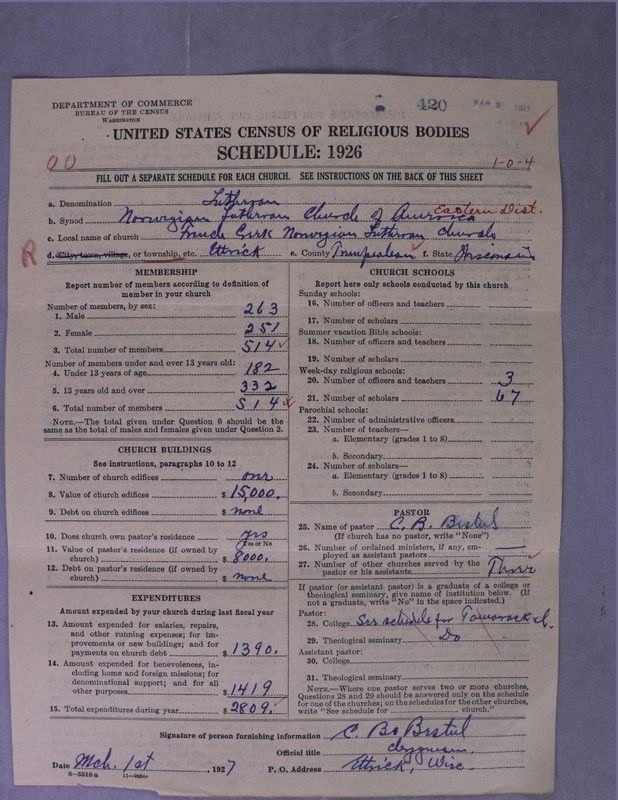 420 MAR 3 1927
DEPARTMENT OF COMMERCE
BUREAU OF THE CENSUS
WASHINGTON
UNITED STATES CENSUS OF RELIGIOUS BODIES
SCHEDULE: 1926
00
1-0-4
FILL OUT A SEPARATE SCHEDULE FOR EACH CHURCH. SEE INSTRUCTIONS ON THE BACK OF THIS SHEET
a. Denomination Lutheran
b. Synod Norwegian Lutheran Church of America Eastern Dist.
c. Local name of church French Creek Norwegian Lutheran Church
R d. City, town, village, or township, etc. Ettrick e. County Trempealeau f. State Wisconsin
MEMBERSHIP
Report number of members according to definition of
member in your church
Number of members, by sex:
1. Male 263
2. Female 251
3. Total number of members 514
Number of members under and over 13 years old:
4. Under 13 years of age 182
5. 13 years old and over 332
6. Total number of members 514
NOTE.—The total given under Question 6 should be the
same as the total of males and females given under Question 3.
CHURCH BUILDINGS
See instructions, paragraphs 10 to 12
7. Number of church edifices one
8. Value of church edifices $ 15,000.
9. Debt on church edifices $ none
10. Does church own pastor's residence yes
Yes or No
11. Value of pastor's residence (if owned by
church) $ 8000.
12. Debt on pastor's residence (if owned by
church) $ none
EXPENDITURES
Amount expended by your church during last fiscal year
13. Amount expended for salaries, repairs,
and other running expenses; for im-
provements or new buildings; and for
payments on church debt $ 1390.
14. Amount expended for benevolences, in-
cluding home and foreign missions; for
denominational support; and for all
other purposes $ 1419
15. Total expenditures during year $ 2809.
CHURCH SCHOOLS
Report here only schools conducted by this church
Sunday schools:
16. Number of officers and teachers
17. Number of scholars
Summer vacation Bible schools:
18. Number of officers and teachers
19. Number of scholars
Week-day religious schools:
20. Number of officers and teachers 3
21. Number of scholars 67
Parochial schools:
22. Number of administrative officers
23. Number of teachers—
a. Elementary (grades 1 to 8)
b. Secondary
24. Number of scholars—
a. Elementary (grades 1 to 8)
b. Secondary
PASTOR
25. Name of pastor C. B. Bestul
(If church has no pastor, write "None")
26. Number of ordained ministers, if any, em-
ployed as assistant pastors
27. Number of other churches served by the
pastor or his assistants Three
If pastor (or assistant pastor) is a graduate of a college or
theological seminary, give name of institution below. (If
not a graduate, write "No" in the space indicated.)
Pastor:
28. College See schedule for
29. Theological seminary Do
Assistant pastor:
30. College
31. Theological seminary
NOTE.—Where one pastor serves two or more churches,
Questions 28 and 29 should be answered only on the schedule
for one of the churches; on the schedules for the other churches,
write "See schedule for church."
Signature of person furnishing information C. B. Bestul
Official title clergyman.
Date Mch. 1st, 1927 P. O. Address Ettrick, Wisc
8—5318a 11—9684